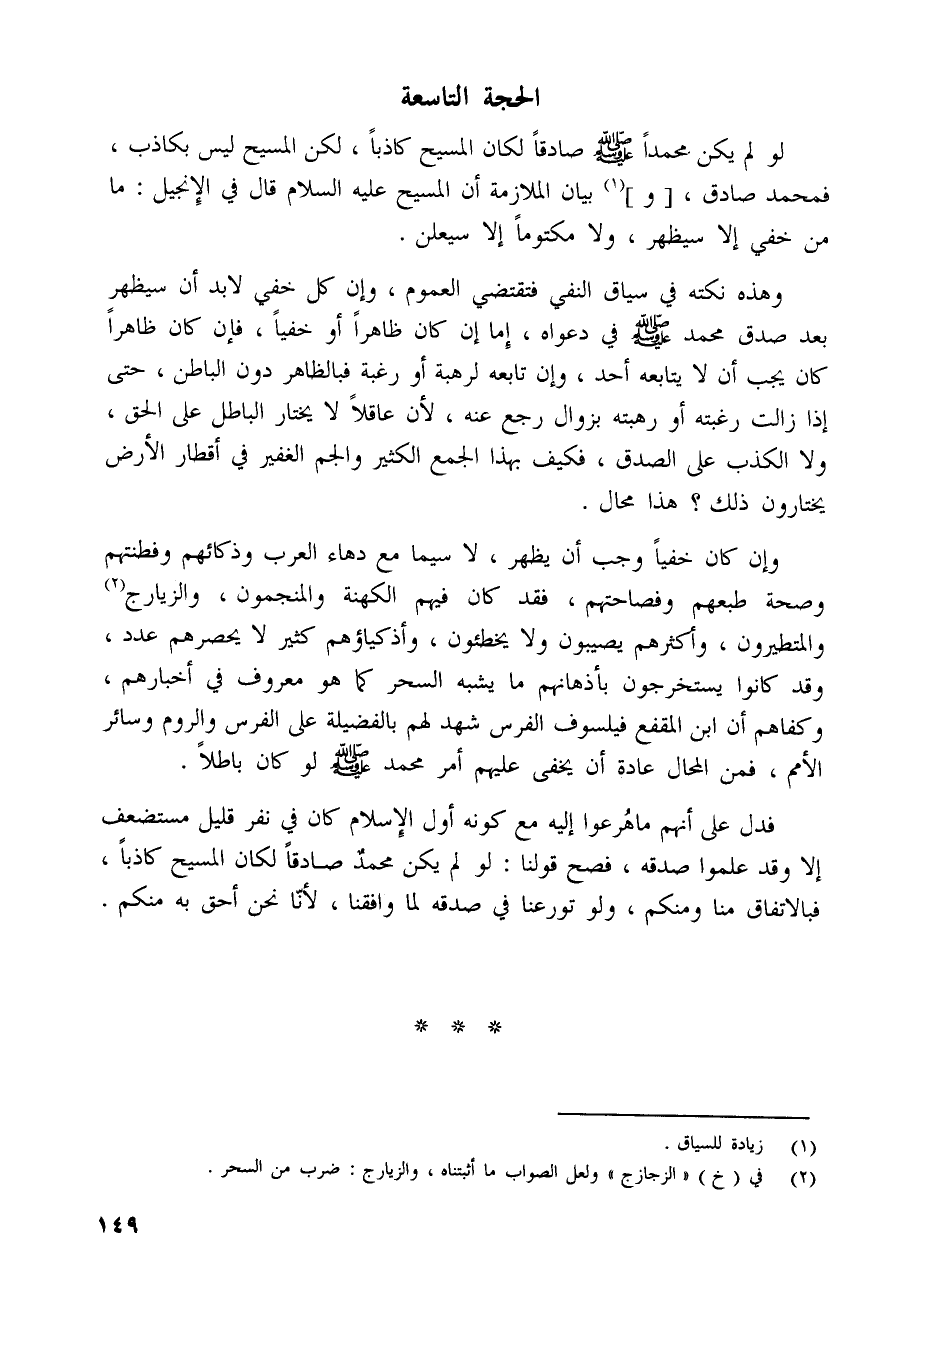 الحجة التاسعة
لو لم يكن محمداً ﷺ صادقاً لكان المسيح كاذباً ، لكن المسيح ليس بكاذب ،
فمحمد صادق ، [ و ](١) بيان الملازمة أن المسيح عليه السلام قال في الإنجيل : ما
من خفي إلا سيظهر ، ولا مكتوماً إلا سيعلن .
وهذه نكته في سياق النفي فتقتضي العموم ، وإن كل خفي لابد أن سيظهر
بعد صدق محمد ﷺ في دعواه ، إما إن كان ظاهراً أو خفياً ، فإن كان ظاهراً
كان يجب أن لا يتابعه أحد ، وإن تابعه لرهبة أو رغبة فبالظاهر دون الباطن ، حتى
إذا زالت رغبته أو رهبته بزوال رجع عنه ، لأن عاقلاً لا يختار الباطل على الحق ،
ولا الكذب على الصدق ، فكيف بهذا الجمع الكثير والجم الغفير في أقطار الأرض
يختارون ذلك ؟ هذا محال .
وإن كان خفياً وجب أن يظهر ، لا سيما مع دهاء العرب وذكائهم وفطنتهم
وصحة طبعهم وفصاحتهم ، فقد كان فيهم الكهنة والمنجمون ، والزيارج(٢)
والمتطيرون ، وأكثرهم يصيبون ولا يخطئون ، وأذكياؤهم كثير لا يحصرهم عدد ،
وقد كانوا يستخرجون بأذهانهم ما يشبه السحر كما هو معروف في أخبارهم ،
وكفاهم أن ابن المقفع فيلسوف الفرس شهد لهم بالفضيلة على الفرس والروم وسائر
الأمم ، فمن المحال عادة أن يخفى عليهم أمر محمد ﷺ لو كان باطلاً .
فدل على أنهم ماهُرعوا إليه مع كونه أول الإسلام كان في نفر قليل مستضعف
إلا وقد علموا صدقه ، فصح قولنا : لو لم يكن محمدٌ صادقاً لكان المسيح كاذباً ،
فبالاتفاق منا ومنكم ، ولو تورعنا في صدقه لما وافقنا ، لأنّا نحن أحق به منكم .
* * *
(١) زيادة للسياق .
(٢) في ( خ ) « الزجازج » ولعل الصواب ما أثبتناه ، والزيارج : ضرب من السحر .
١٤٩